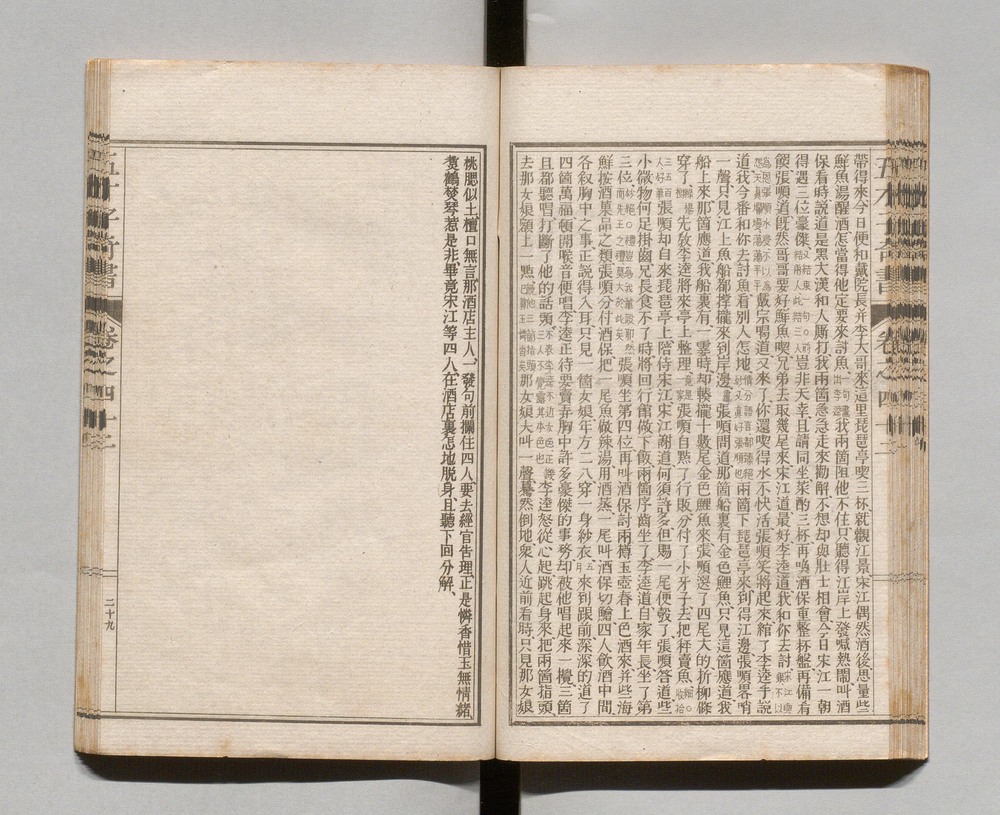 帶得來今日便和戴院長并李大哥來這里琵琶亭喫三杯就觀江景宋江偶然酒後思量些
鮮魚湯醒酒怎當得他定要來討魚我兩箇阻他不住只聽得江岸上發喊熱鬧叫酒
保看時說道是黑大漢和人厮打我兩箇急急走來勸解不想却與壯士相會今日宋江一朝
得遇三位豪傑豈非天幸且請同坐菜酌三杯再喚酒保重整杯盤再備肴
饌張順道既然哥哥要好鮮魚喫兄弟去取幾尾來宋江道最好李逵道我和你去討
戴宗喝道又來了你還喫得水不快活張順笑將起來綰了李逵手說
道我今番和你去討魚看別人怎地兩箇下琵琶亭來到得江邊張順畧哨
一聲只見江上魚船都撑攏來到岸邊張順問道那箇船裏有金色鯉魚只見這箇應道我
船上來那箇應道我船裏有一霎時却輳攏十數尾金色鯉魚來張順選了四尾大的折柳條
穿了先敎李逵將來亭上整理張順自㸃了行販分付了小牙子去把秤賣魚
張順却自來琵琶亭上陪侍宋江宋江謝道何須許多但賜一尾便彀了張順答道些
小微物何足掛齒兄長食不了時將回行館做下飯兩箇序齒坐了李逵道自家年長坐了第
三位張順坐第四位再叫酒保討兩樽玉壺春上色酒來并些海
鮮按酒菓品之類張順分付酒保把一尾魚做辣湯用酒蒸一尾叫酒保切鱠四人飲酒中間
各叙胸中之事正說得入耳只見一箇女娘年方二八穿一身紗衣來到跟前深深的道了
四箇萬福頓開喉音便唱李逵正待要賣弄胸中許多豪傑的事務却被他唱起來一攪三箇
且都聽唱打斷了他的話頭李逵怒從心起跳起身來把兩箇指頭
去那女娘額上一㸃那女娘大叫一聲驀然倒地衆人近前看時只見那女娘
桃腮似土檀口無言那酒店主人一發句前攔住四人要去經官告理正是憐香惜玉無情緒
煑鶴焚琴惹是非畢竟宋江等四人在酒店裏怎地脫身且聽下回分解
二十九